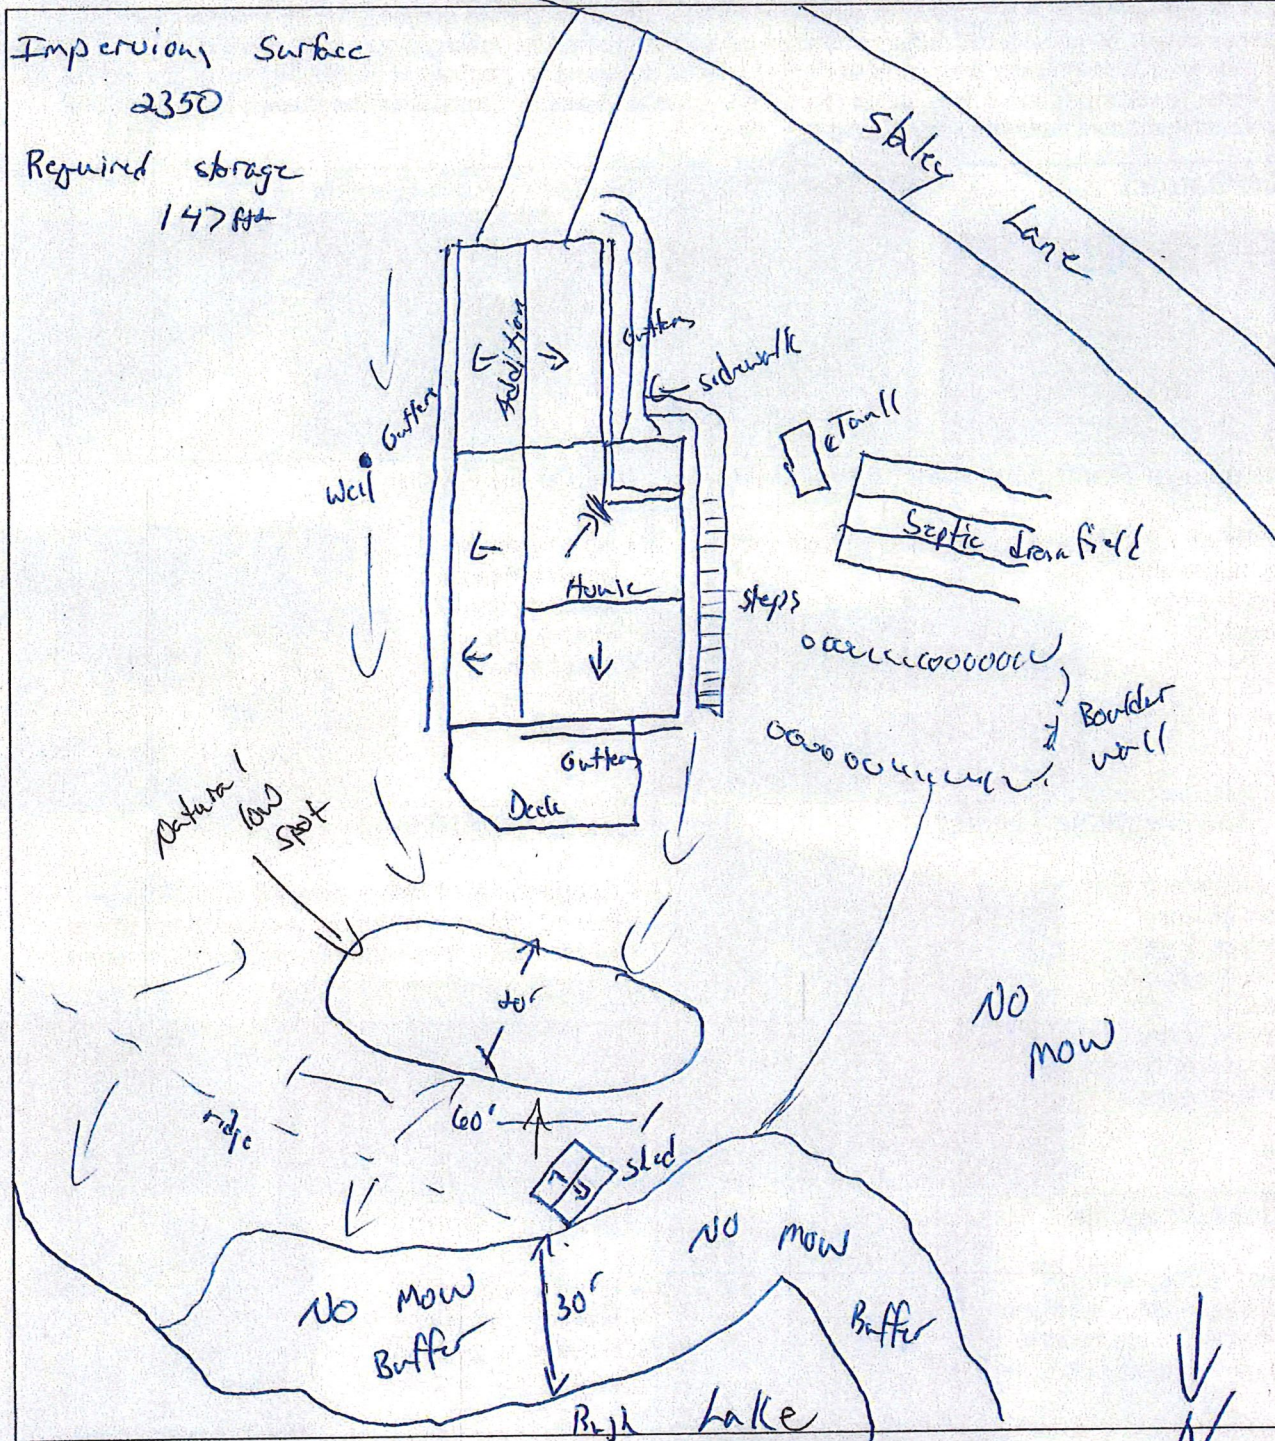 Impervious Surface
2350
Required storage
147 ft
Staley
Lane
Addition
Gutters
sidewalk
Gutters
Well
Tank
Septic drainfield
House
steps
Boulder
wall
Gutters
Deck
Natural
low
spot
20'
NO
MOW
60'
ridge
Shed
NO MOW
Buffer
30'
NO MOW
Buffer
Lake
N